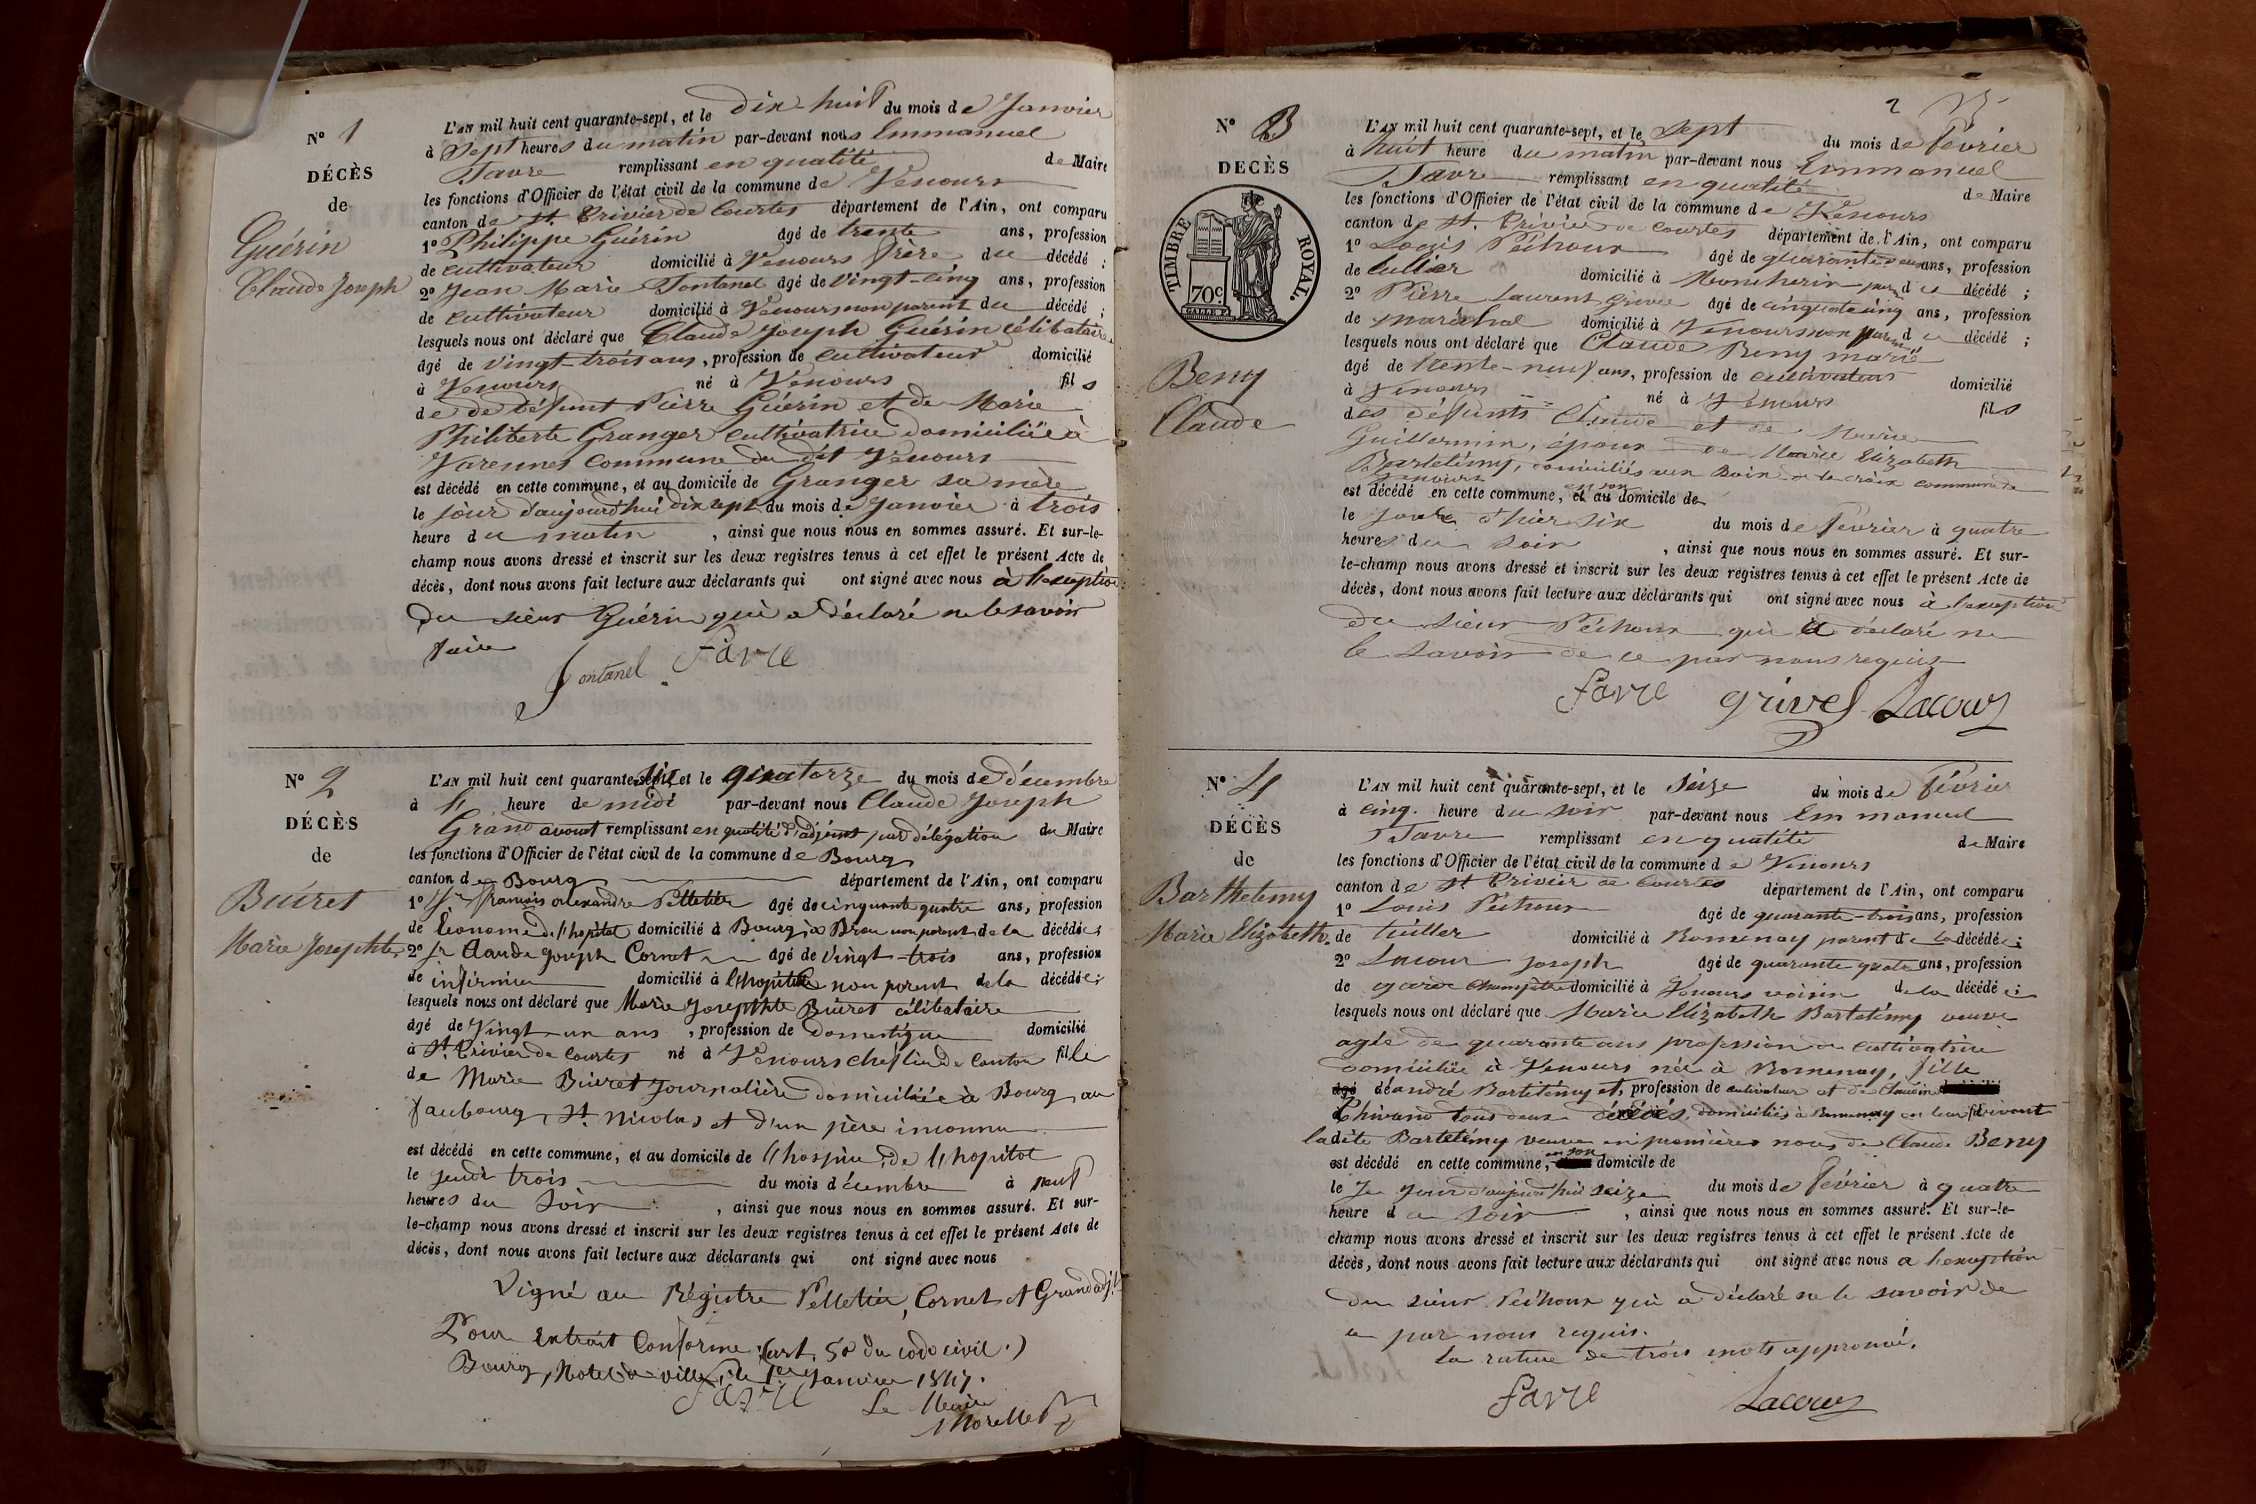 N° 1
DÉCÈS
de
Guérin
Claude Joseph
L'AN mil huit cent quarante-sept, et le dix-huit du mois de Janvier
à Sept heures du matin par-devant nous Emmanuel
Favre remplissant en qualité de Maire
les fonctions d'Officier de l'état civil de la commune de Vescours
canton de St. Trivier de Courtes département de l'Ain, ont comparu
1° Philippe Guérin âgé de trente ans, profession
de cultivateur domicilié à Vescours frère du décédé ;
2° Jean Marie Fontanel âgé de vingt-cinq ans, profession
de cultivateur domicilié à Vescours non parent du décédé ;
lesquels nous ont déclaré que Claude Joseph Guérin célibataire
âgé de vingt-trois ans, profession de cultivateur domicilié
à Vescours né à Vescours fils
de de défunt Pierre Guérin et de Marie
Philiberte Granger cultivatrice domiciliée à
Varennes commune du dit Vescours
est décédé en cette commune, et au domicile de Granger sa mère
le jour d'aujourd'hui dix sept du mois de Janvier à trois
heure du matin, ainsi que nous nous en sommes assuré. Et sur-le-
champ nous avons dressé et inscrit sur les deux registres tenus à cet effet le présent Acte de
décès, dont nous avons fait lecture aux déclarants qui ont signé avec nous à l'exception
du sieur Guérin qui a déclaré ne le savoir
faire
Fontanel Favre
N° 2
DÉCÈS
de
Buiret
Marie Josephte
L'AN mil huit cent quarante-six et le quatorze du mois de décembre
à l' heure de midi par-devant nous Claude Joseph
Grand avouat remplissant en qualité d'adjoint par délégation du Maire
les fonctions d'Officier de l'état civil de la commune de Bourg
canton de Bourg département de l'Ain, ont comparu
1° Sr François Alexandre Pelletier âgé de cinquante quatre ans, profession
de Économe de l'hôpital domicilié à Bourg, à Brou non parent de la décédée ;
2° Sr Claude Joseph Cornet âgé de vingt-trois ans, profession
de infirmier domicilié à l'hôpital non parent de la décédée ;
lesquels nous ont déclaré que Marie Josephte Buiret célibataire
âgé de vingt-un ans, profession de domestique domicilié
à St. Trivier de Courtes né à Vescours chef lieu de Canton fille
de Marie Buiret journalière domiciliée à Bourg, au
faubourg St. Nicolas et d'un père inconnu
est décédé en cette commune, et au domicile de l'hospice, de l'hopital
le jeudi trois du mois décembre à neuf
heures du soir, ainsi que nous nous en sommes assuré. Et sur-
le-champ nous avons dressé et inscrit sur les deux registres tenus à cet effet le présent Acte de
décès, dont nous avons fait lecture aux déclarants qui ont signé avec nous
Signé au Régistre Pelletier, Cornet et Grand adjt
Pour Extrait Conforme : (art. 50 du code civil.)
Bourg, Hotel de ville, le 1er Janvier 1847.
Favre Le Maire
Morellet
2
N° 3
DECÈS
TIMBRE ROYAL.
70c
Beny
Claude
L'AN mil huit cent quarante-sept, et le sept du mois de février
à huit heure du matin par-devant nous Emmanuel
Favre remplissant en qualité de Maire
les fonctions d'Officier de l'état civil de la commune de Vescours
canton de St. Trivier de Courtes département de l'Ain, ont comparu
1° Louis Péchoux âgé de quarante ans, profession
de tuilier domicilié à parent du décédé ;
2° Pierre Laurent Grivel âgé de cinquante cinq ans, profession
de maréchal domicilié à Vescours non parent du décédé ;
lesquels nous ont déclaré que Claude Beny marié
âgé de trente-neuf ans, profession de cultivateur domicilié
à Vescours né à Vescours fils
des défunts Claude et de Marie
Guillermin, époux de Marie Elizabeth
Bartelémy, domiciliés aux Bois de la croix commune de
Vescours
est décédé en cette commune, en son domicile de
le jour d'hier six du mois de février à quatre
heures du soir, ainsi que nous nous en sommes assuré. Et sur-
le-champ nous avons dressé et inscrit sur les deux registres tenus à cet effet le présent Acte de
décès, dont nous avons fait lecture aux déclarants qui ont signé avec nous à l'exception
du sieur Péchoux qui a déclaré ne
le savoir de ce par nous requis
Favre Grivel Lacour
N° 4
DÉCÈS
de
Barthelemy
Marie Elizabeth
L'AN mil huit cent quarante-sept, et le seize du mois de février
à cinq heure du soir par-devant nous Emmanuel
Favre remplissant en qualité de Maire
les fonctions d'Officier de l'état civil de la commune de Vescours
canton de St Trivier de Courtes département de l'Ain, ont comparu
1° Louis Péchoux âgé de quarante-trois ans, profession
de tuilier domicilié à Romenay parent de la décédée ;
2° Lacour Joseph âgé de quarante quatre ans, profession
de garde champêtre domicilié à Vescours voisin de la décédée ;
lesquels nous ont déclaré que Marie Elizabeth Bartelémy veuve
agée de quarante ans profession de cultivatrice
domiciliée à Vescours née à Romenay, fille
d'André Bartelémy et, profession de cultivateur et de Claudine
Chivand tous deux décédés, domiciliés à Romenay en leur vivant
ladite Bartelémy veuve en premières noces de Claude Beny
est décédé en cette commune, en son domicile de
le jour d'aujourd'hui seize du mois de février à quatre
heure du soir, ainsi que nous nous en sommes assuré. Et sur-le-
champ nous avons dressé et inscrit sur les deux registres tenus à cet effet le présent Acte de
décès, dont nous avons fait lecture aux déclarants qui ont signé avec nous a l'exception
du sieur Péchoux qui a déclaré ne le savoir de
ce par nous requis.
La rature de trois mots approuvé.
Favre Lacour